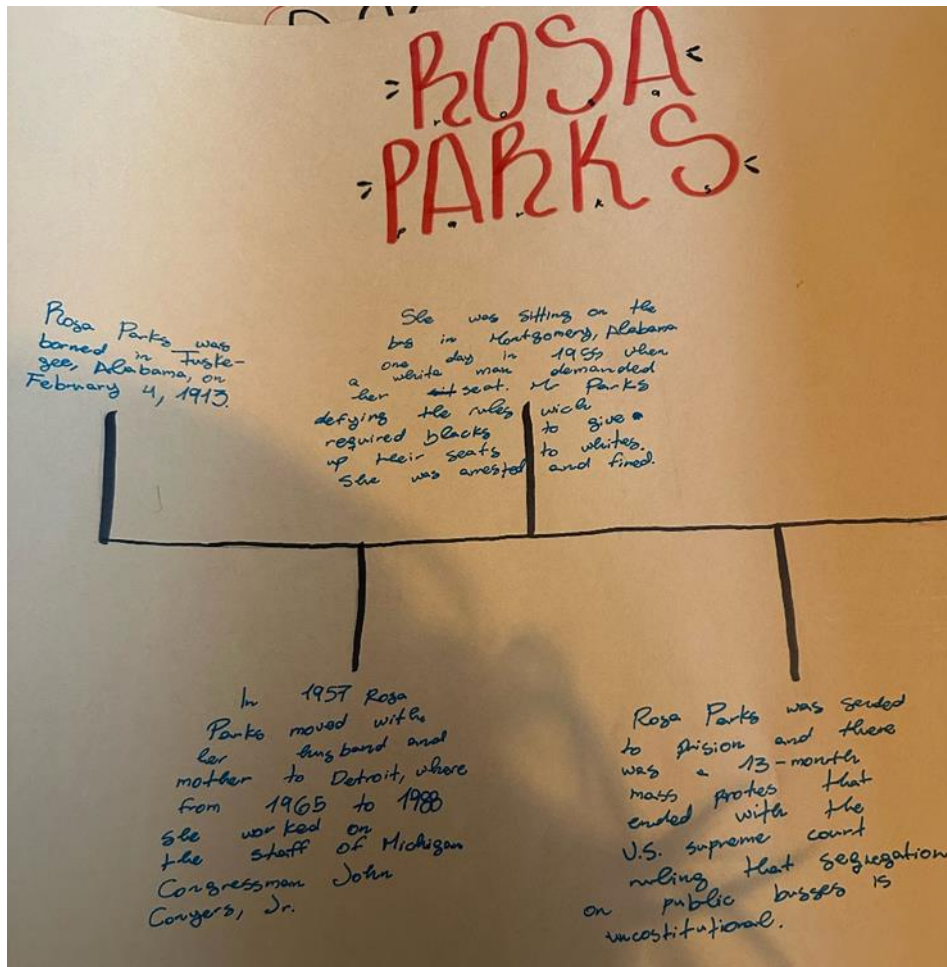 ROSA
PARKS
Rosa Parks was
borned in Tuske-
gee, Alabama, on
February 4, 1913.
She was sitting on the
bus in Montgomery, Alabama
one day in 1955 when
a white man demanded
her seat. Parks
defying the rules wich
required blacks to give
up their seats to whites.
She was arrested and fined.
In 1957 Rosa
Parks moved with
her husband and
mother to Detroit, where
from 1965 to 1988
she worked on
the staff of Michigan
Congressman John
Conyers, Jr.
Rosa Parks was sended
to prision and there
was a 13-month
mass protes that
ended with the
U.S. supreme court
ruling that segregation
on public busses is
uncostitutional.